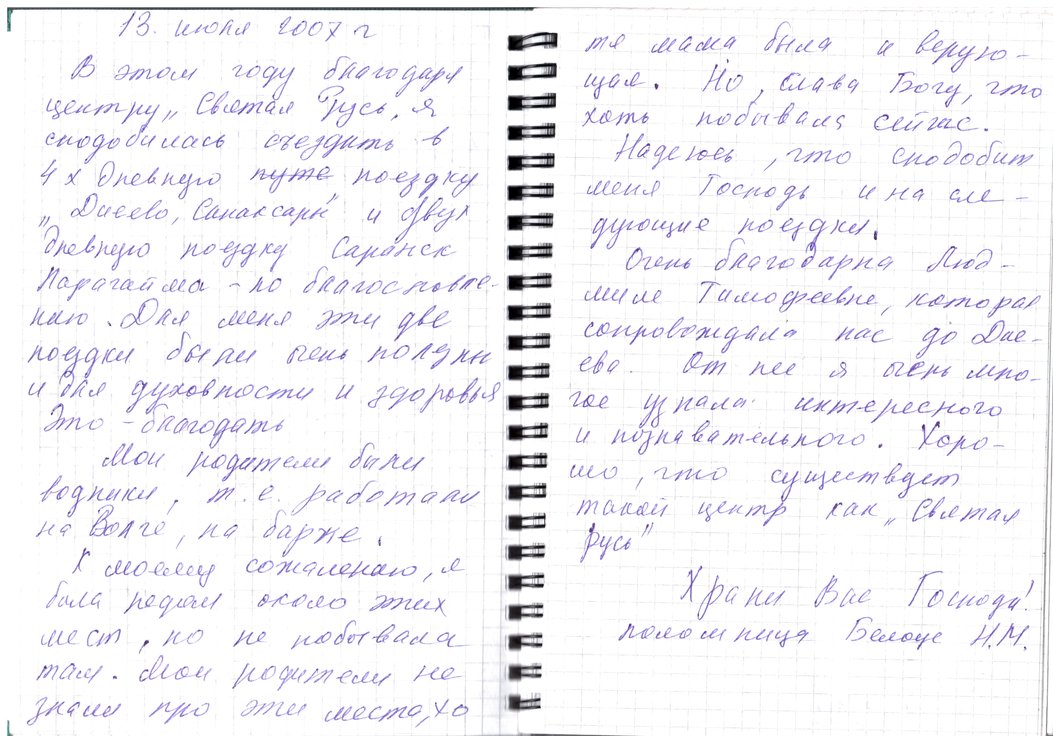 13. июля 2007 г
В этом году благодаря
центру „Святая Русь" я
сподобилась съездить в
4х дневную путе поездку
„Дивеево, Санаксары" и двух
дневную поездку Саранск
– по благословле-
нию. Для меня эти две
поездки были очень полезны
и для духовности и здоровья
Это – благодать
Мои родители были
водники, т.е. работали
на Волге, на барже.
К моему сожалению, я
была рядом около этих
мест, но не побывала
там. Мои родители не
знали про эти места, хо
тя мама была и верую-
щая. Но, слава Богу, что
хоть побывала сейчас.
Надеюсь, что сподобит
меня Господь и на сле-
дующие поездки.
Очень благодарна Люд-
миле Тимофеевне, которая
сопровождала нас до Диве-
ева. От нее я очень мно-
гое узнала интересного
и познавательного. Хоро-
шо, что существует
такой центр как „Святая
Русь"
Храни Вас Господь!
паломница Н.М.